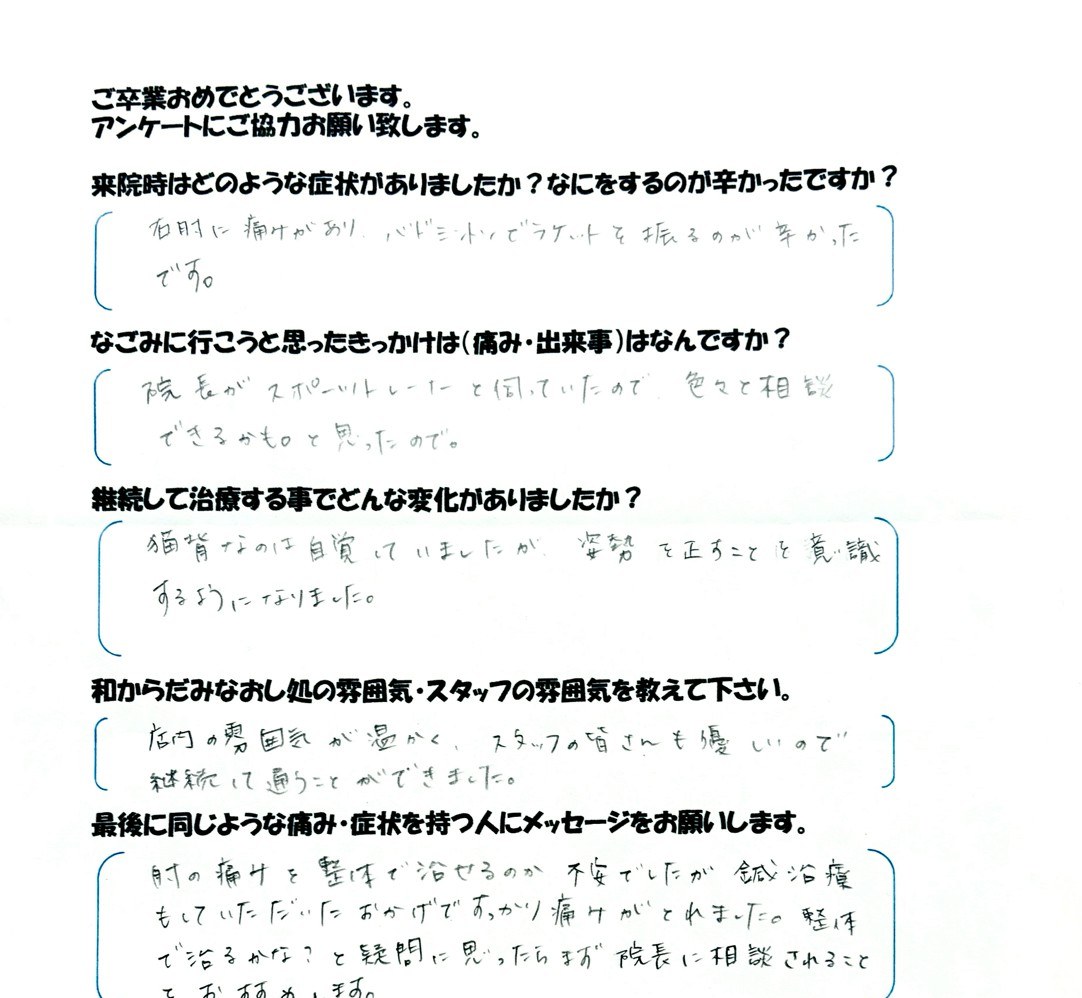 ご卒業おめでとうございます。
アンケートにご協力お願い致します。
来院時はどのような症状がありましたか？なにをするのが辛かったですか？
右肘に痛みがあり、バドミントンでラケットを振るのが辛かった
です。
なごみに行こうと思ったきっかけは（痛み・出来事）はなんですか？
院長がスポーツトレーナーと伺っていたので、色々と相談
できるかも。と思ったので。
継続して治療する事でどんな変化がありましたか？
猫背なのは自覚していましたが、姿勢を正すことを意識
するようになりました。
和からだみなおし処の雰囲気・スタッフの雰囲気を教えて下さい。
店内の雰囲気が温かく、スタッフの皆さんも優しいので
継続して通うことができました。
最後に同じような痛み・症状を持つ人にメッセージをお願いします。
肘の痛みを整体で治せるのか不安でしたが鍼治療
もしていただいたおかげですっかり痛みがとれました。整体
で治るかな？と疑問に思ったらまず院長に相談されること
をおすすめします。